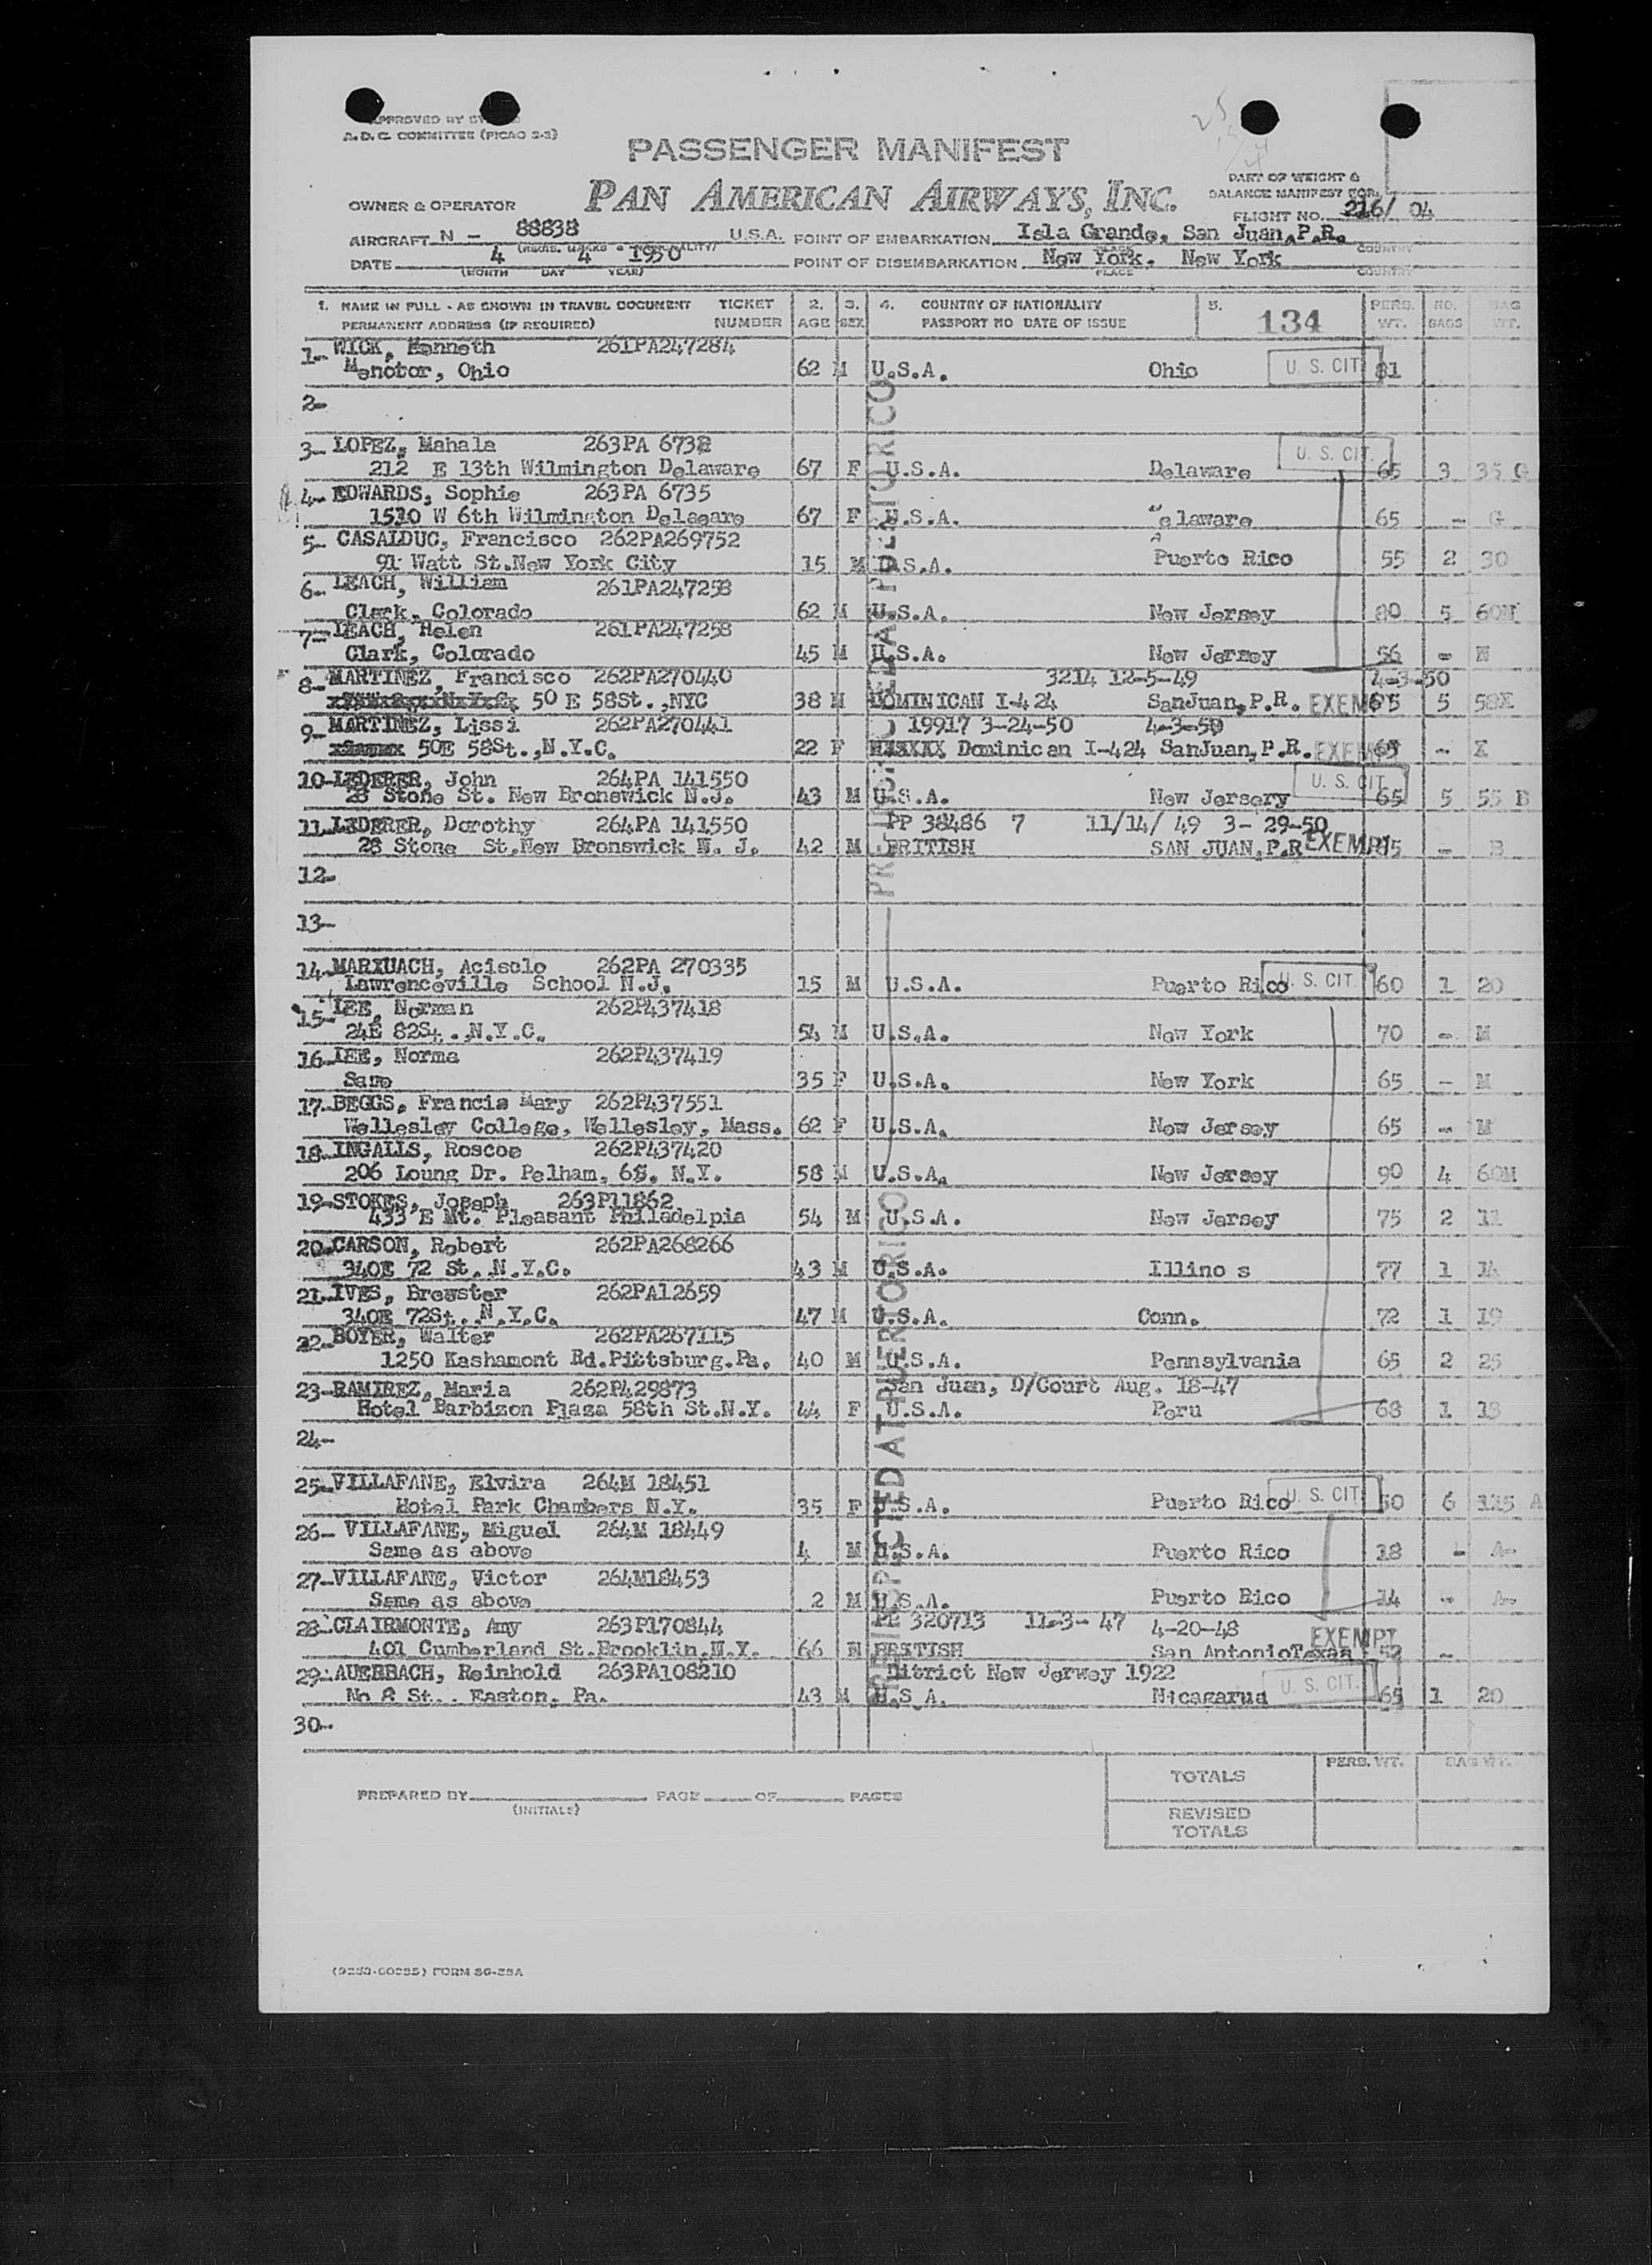 APPROVED BY
A.D.C. COMMITTEE (PICAO 2-3)
PASSENGER MANIFEST
PAN AMERICAN AIRWAYS, INC.
PART OF WEIGHT &
BALANCE MANIFEST FOR
OWNER & OPERATOR
FLIGHT NO. 216/ 04
AIRCRAFT N - 88838 U.S.A. POINT OF EMBARKATION Isla Grande, San Juan, P.R.
DATE 4 4 1950 POINT OF DISEMBARKATION New York, New York
(MONTH DAY YEAR) PLACE COUNTRY
1. NAME IN FULL - AS SHOWN IN TRAVEL DOCUMENT TICKET 2. 3. 4. COUNTRY OF NATIONALITY 5. PERS. NO. BAG
PERMANENT ADDRESS (IF REQUIRED) NUMBER AGE SEX PASSPORT NO DATE OF ISSUE 134 WT. BAGS WT.
1- WICK, Kenneth 261PA247284
Menotor, Ohio 62 M U.S.A. Ohio U. S. CIT 81
2-
3- LOPEZ, Mahala 263PA 6732
212 E 13th Wilmington Delaware 67 F U.S.A. Delaware U. S. CIT. 65 3 35 G
4- EDWARDS, Sophie 263PA 6735
1510 W 6th Wilmington Delaeare 67 F U.S.A. Delaware 65 - G
5- CASALDUC, Francisco 262PA269752
91 Watt St.New York City 15 M U.S.A. Puerto Rico 55 2 30
6- LEACH, William 261PA247258
Clark, Colorado 62 M U.S.A. New Jersey 80 5 60M
7- LEACH, Helen 261PA247258
Clark, Colorado 45 M U.S.A. New Jersey 56 - M
8- MARTINEZ, Francisco 262PA270440 3214 12-5-49 4-3-50
50 E 58St.,NYC 38 M DOMINICAN I-424 SanJuan,P.R. EXEMPT 5 58X
9- MARTINEZ, Lissi 262PA270441 19917 3-24-50 4-3-50
50E 58St.,N.Y.C. 22 F XXXXXX Dominican I-424 SanJuan,P.R. - X
10- LEDERER, John 264PA 141550
28 Stone St. New Bronswick N.J. 43 M U.S.A. New Jersery U. S. CIT 65 5 55 B
11- LEDERER, Dorothy 264PA 141550 PP 38486 7 11/14/ 49 3- 29-50
28 Stone St.New Bronswick N. J. 42 M BRITISH SAN JUAN,P.R EXEMPT - B
12-
13-
14- MARXUACH, Acisclo 262PA 270335
Lawrenceville School N.J. 15 M U.S.A. Puerto Rico U. S. CIT. 60 1 20
15- LEE, Norman 262P437418
24E 82St.,N.Y.C. 54 M U.S.A. New York 70 - M
16- LEE, Norma 262P437419
Same 35 F U.S.A. New York 65 - M
17- BEGGS, Francis Mary 262P437551
Wellesley College, Wellesley, Mass. 62 F U.S.A. New Jersey 65 - M
18- INGALLS, Roscoe 262P437420
206 Loung Dr. Pelham, 65, N.Y. 58 M U.S.A. New Jersey 90 4 60M
19- STOKES, Joseph 263P11862
433 E Mt. Pleasant Philadelpia 54 M U.S.A. New Jersey 75 2 11
20- CARSON, Robert 262PA268266
340E 72 St. N.Y.C. 43 M U.S.A. Illino s 77 1 14
21- IVES, Brewster 262PA12659
340E 72St., N.Y.C. 47 M U.S.A. Conn. 72 1 19
22- BOYER, Walter 262PA267115
1250 Kashamont Rd.Pittsburg.Pa. 40 M U.S.A. Pennsylvania 65 2 25
23- RAMIREZ, Maria 262P429873 San Juan, D/Court Aug. 18-47
Hotel Barbizon Plaza 58th St.N.Y. 44 F U.S.A. Peru 68 1 18
24-
25- VILLAFANE, Elvira 264M 18451
Hotel Park Chambers N.Y. 35 F U.S.A. Puerto Rico U. S. CIT 50 6 125 A
26- VILLAFANE, Miguel 264M 18449
Same as above 4 M U.S.A. Puerto Rico 18 - A-
27- VILLAFANE, Victor 264M18453
Same as above 2 M U.S.A. Puerto Rico 14 - A-
28- CLAIRMONTE, Amy 263P170844 PP 320713 11-3- 47 4-20-48
401 Cumberland St.Brooklin,N.Y. 66 BRITISH San AntonioTexas EXEMPT 52 -
29- AUERBACH, Reinhold 263PA108210 Ditrict New Jerwey 1922
No 8 St.. Easton, Pa. 43 M U.S.A. Nicagarua U. S. CIT. 65 1 20
30-
PRE-INSPECTED AT PUERTO RICO
PRE-INSPECTED AT PUERTO RICO
PERS. WT. BAG WT.
TOTALS
PREPARED BY PAGE OF PAGES
(INITIALS)
REVISED
TOTALS
FORM SG-28A